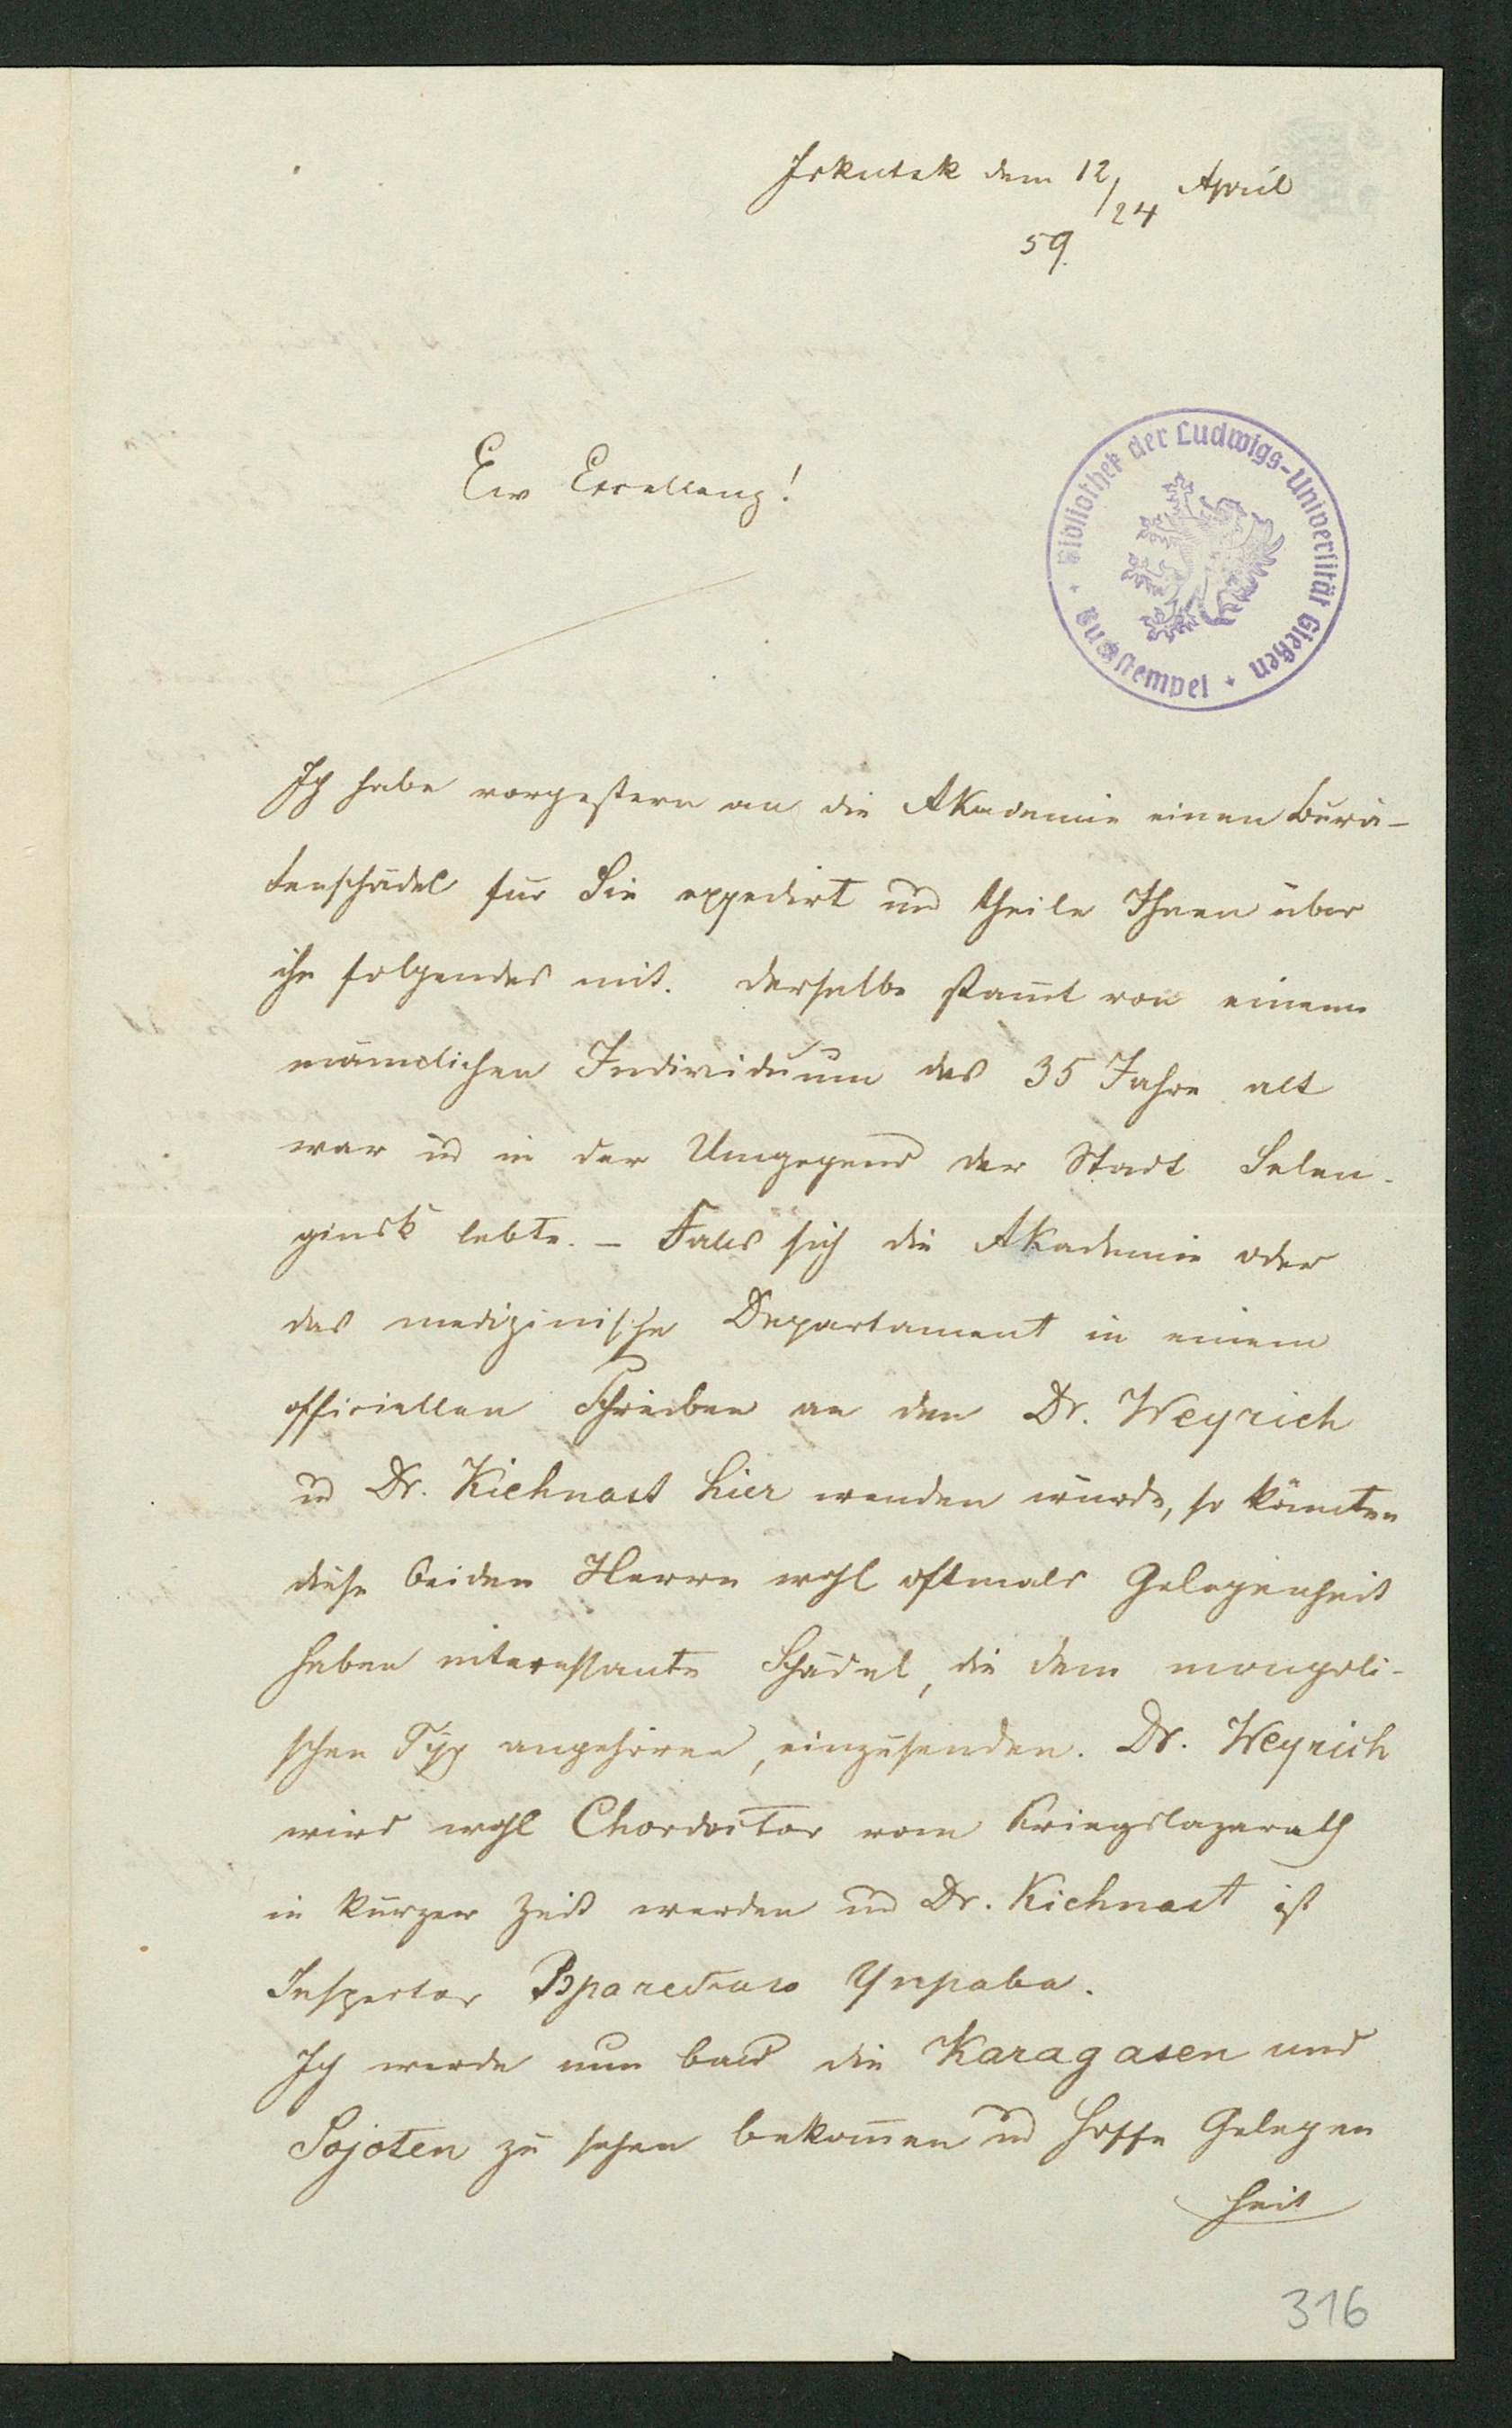 Irkutsk den 12/24 April
59.
Ew Excellenz!
Bibliothek der Ludwigs-Universität Gießen
Buchstempel
Ich habe vorgestern an die Akademie einen Burä-
tenschädel für Sie expedirt und theile Ihnen über
ihn folgendes mit. Derselbe stam̄t von einem
män̄lichen Individuum das 35 Jahre alt
war ud in der Umgegend der Stadt Selen-
ginsk lebte. – Falls sich die Akademie oder
das medizinische Departament in einem
officiellen Schreiben an den Dr. Weyrich
ud Dr. Kiehnast hier wenden würde, so kön̄ten
diese beiden Herrn wohl oftmals Gelegenheit
haben interessante Schädel, die dem mongoli-
schen Typ angehören, einzusenden. Dr. Weyrich
wird wohl Oberdoctor vom Kriegslazareth
in kurzer Zeit werden und Dr. Kiehnast ist
Inspector Управа.
Ich werde nun bald die Karagasen und
Sojoten zu sehen bekom̄en ud hoffe Gelegen
heit
316